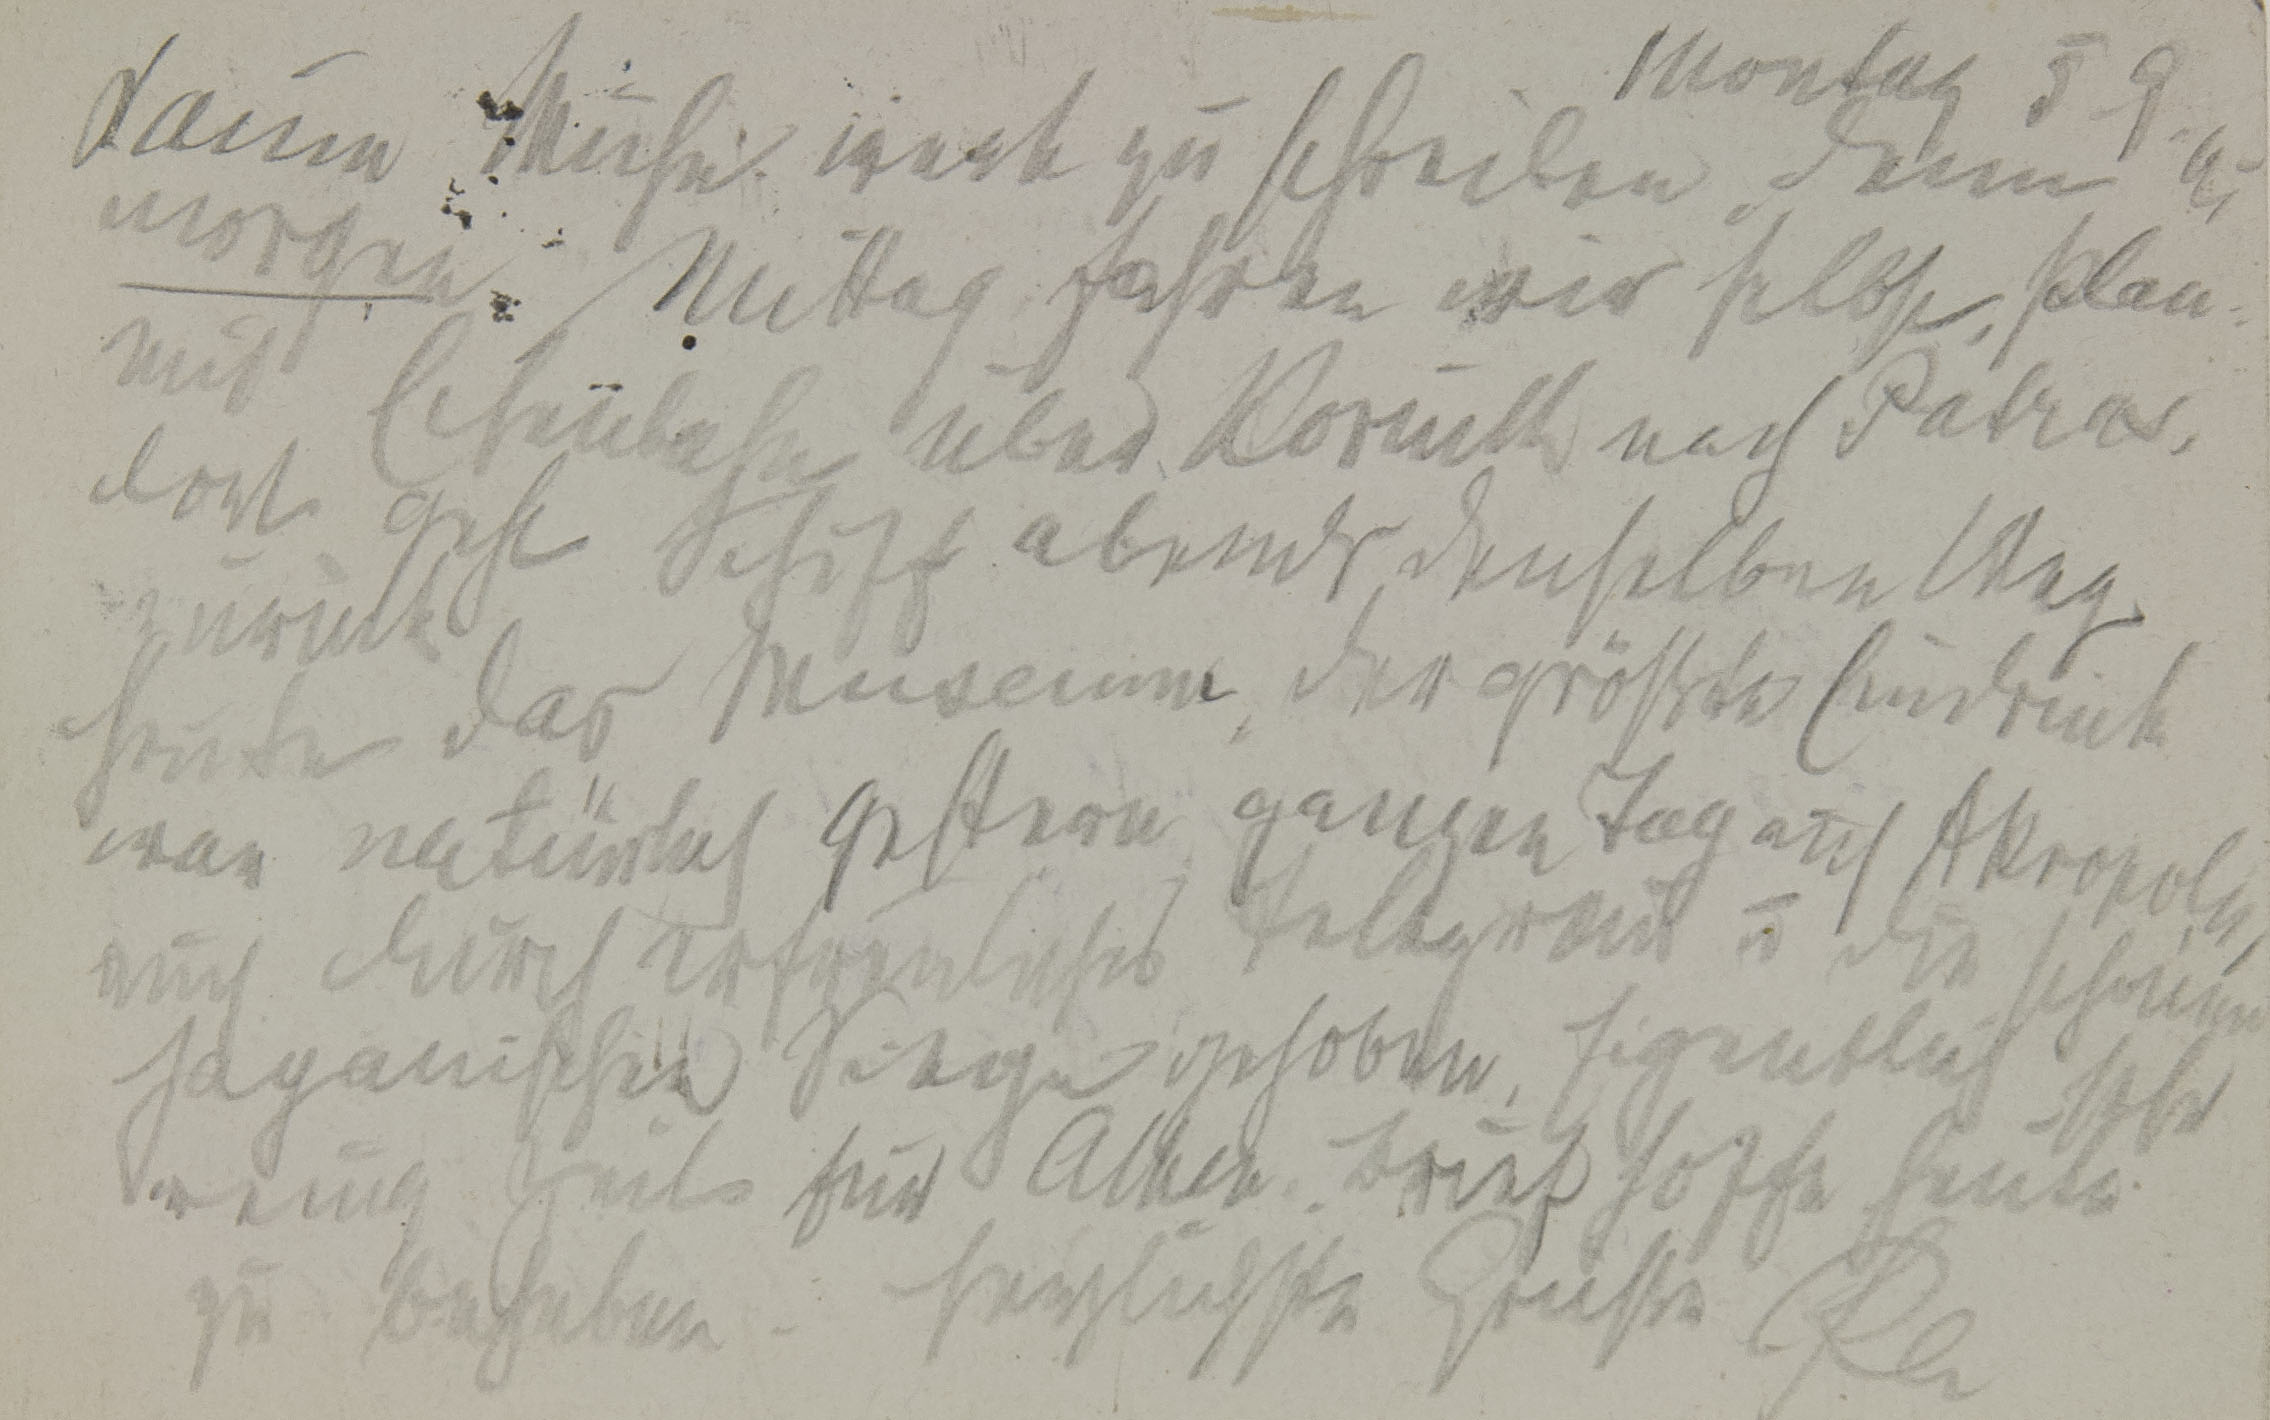 Montag 5 9
Kaum Muße mehr zu schreiben, denn
morgen Mittag fahren wir selbst,
mit Eisenbahn über Korinth nach Patras,
dort geht Schiff abends denselben Weg
zurück
heute das Museum, der größte Eindruck
war natürlich gestern ganzen Tag auf Akropolis,
auch durch erfreuliches Telegram u die schönen
japanischen Siege gehoben, Eigentlich sehr
wenig Zeit für Athen. Brief hoffe heute
zu beheben. herzlichste Grüße